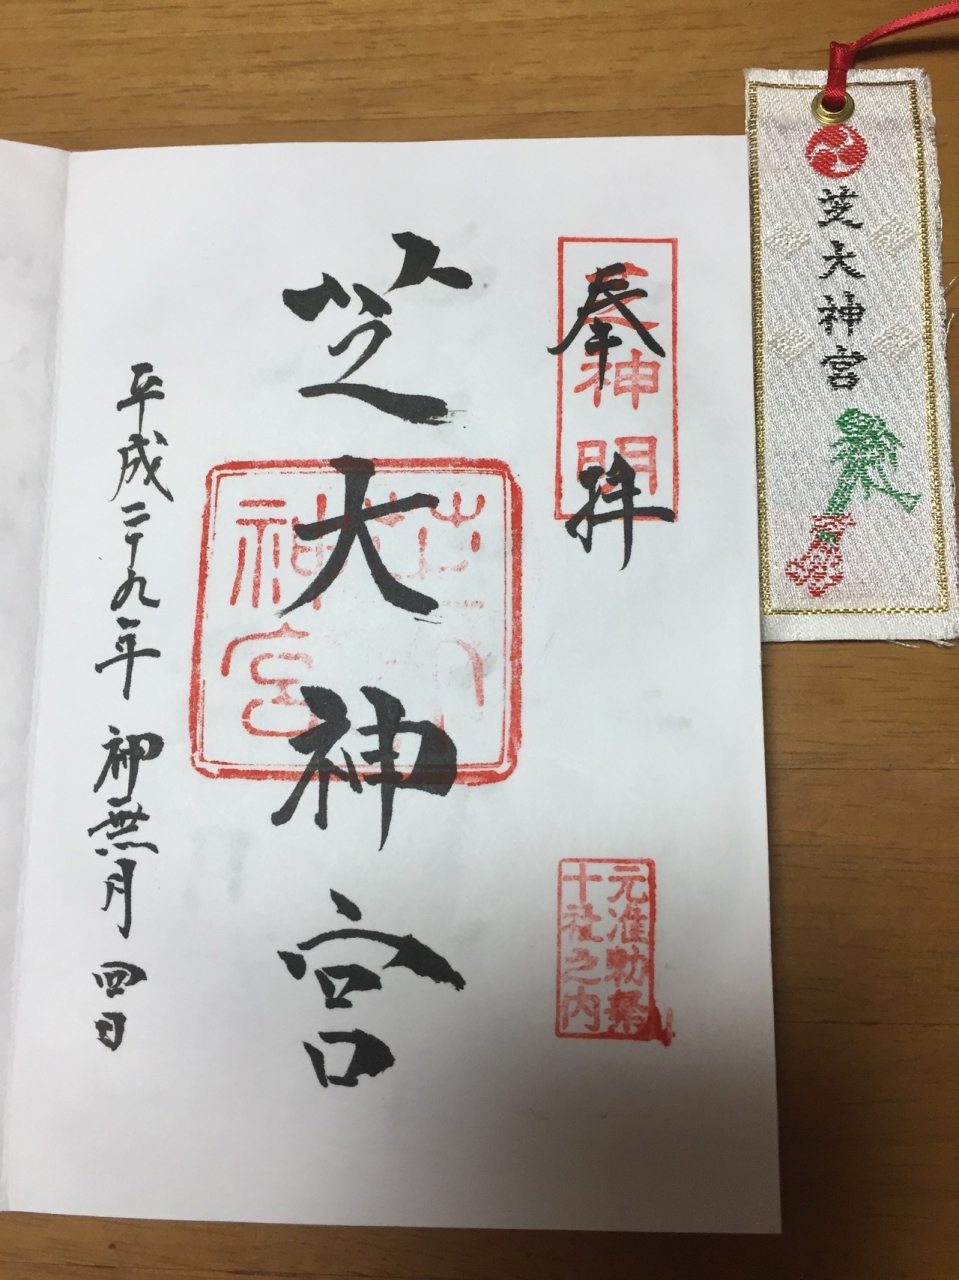 芝大神宮
奉拝
芝神明
元准勅祭
十社之内
芝大神宮
芝大
神宮
平成二十九年 神無月 四日